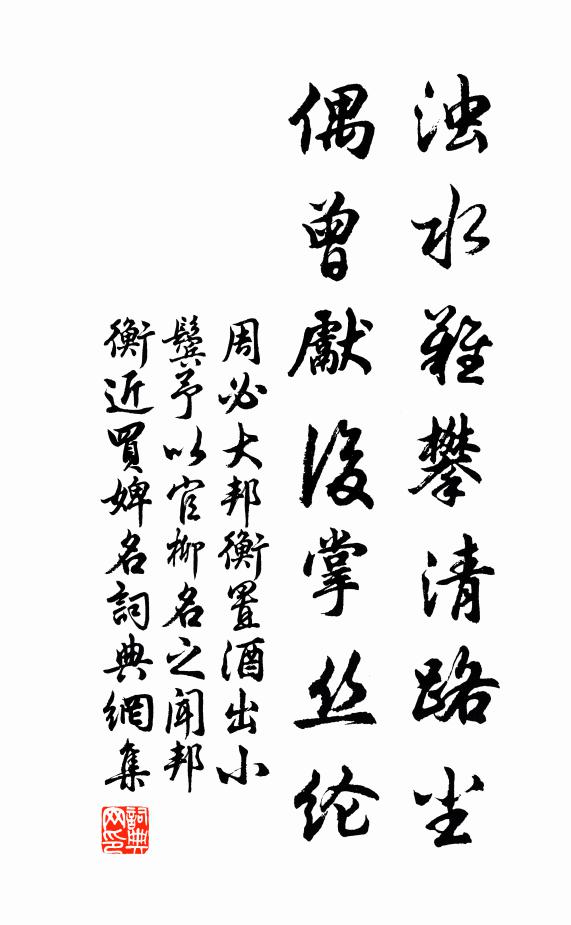 浊水难攀清路尘
偶曾獻後掌丝纶
周必大邦衡置酒出小
鬟予以官柳名之闻邦
衡近買婢名詞典網集
詞典网印